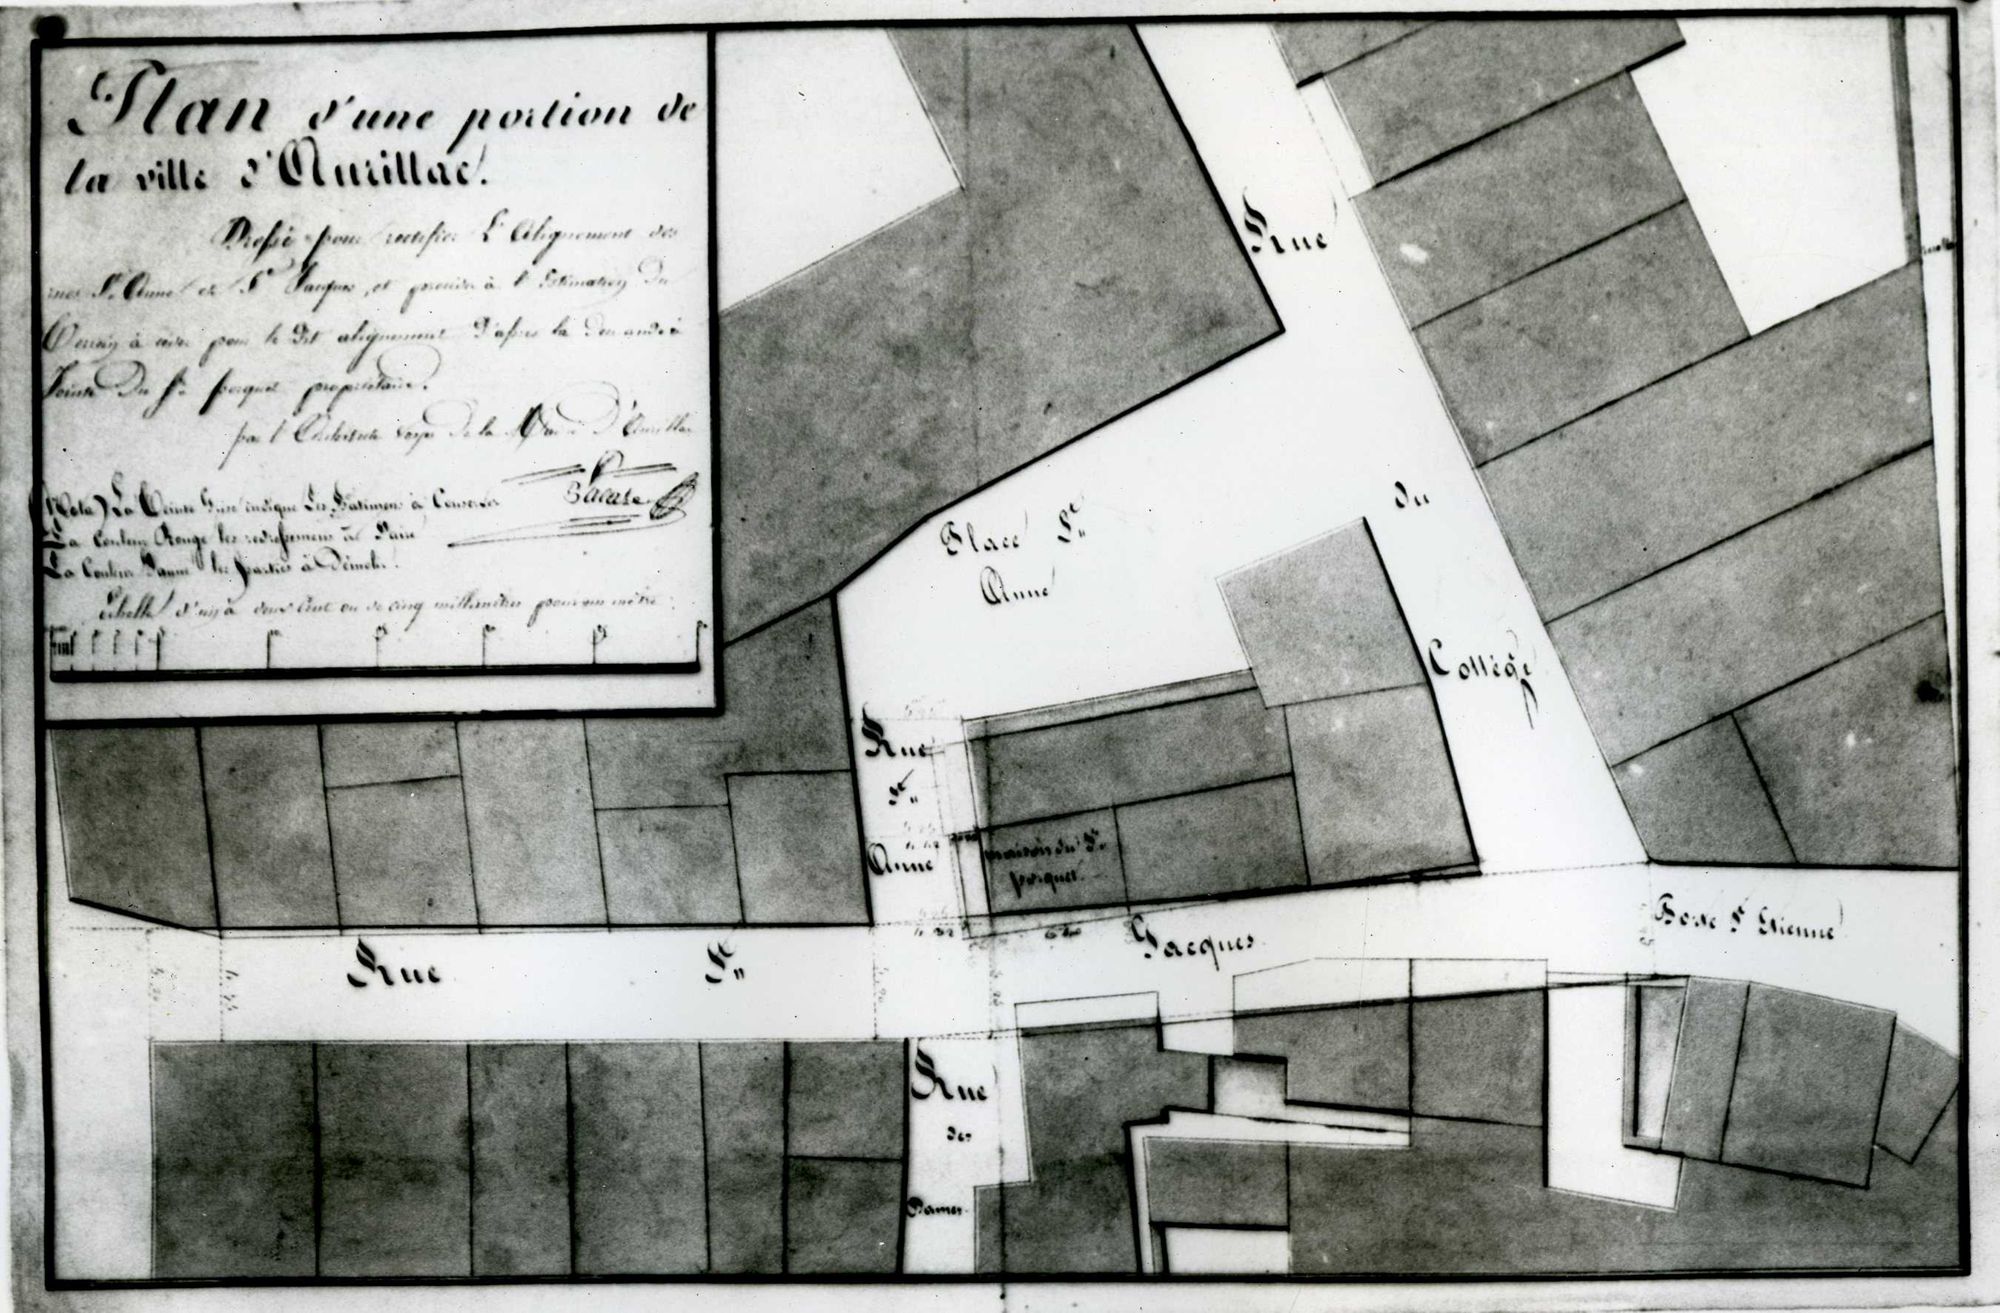 Plan d'une portion de
la ville d'Aurillac.
Dressé pour rectifier l'Alignement des
rues Ste Anne et St Jacques, et procéder à l'Estimation du
Terrein à céder pour le dit alignement D'après la demande
du Sr porquet propriétaire.
par l'Architecte Voyer de la Mairie d'Aurillac
Lacase
(Nota) La Teinte Grise indique Les Batimens à Conserver
La Couleur Rouge les redressemens à Faire
La Couleur Jaune les parties à Démolir.
Echelle d'un à deux Cent ou de cinq millimètres pour un mètre
Rue
du
Collège
Place Ste
Anne
Rue
Ste
Anne
maison du Sr
porquet
Rue St Jacques
Porte St Etienne
Rue
des
Dames